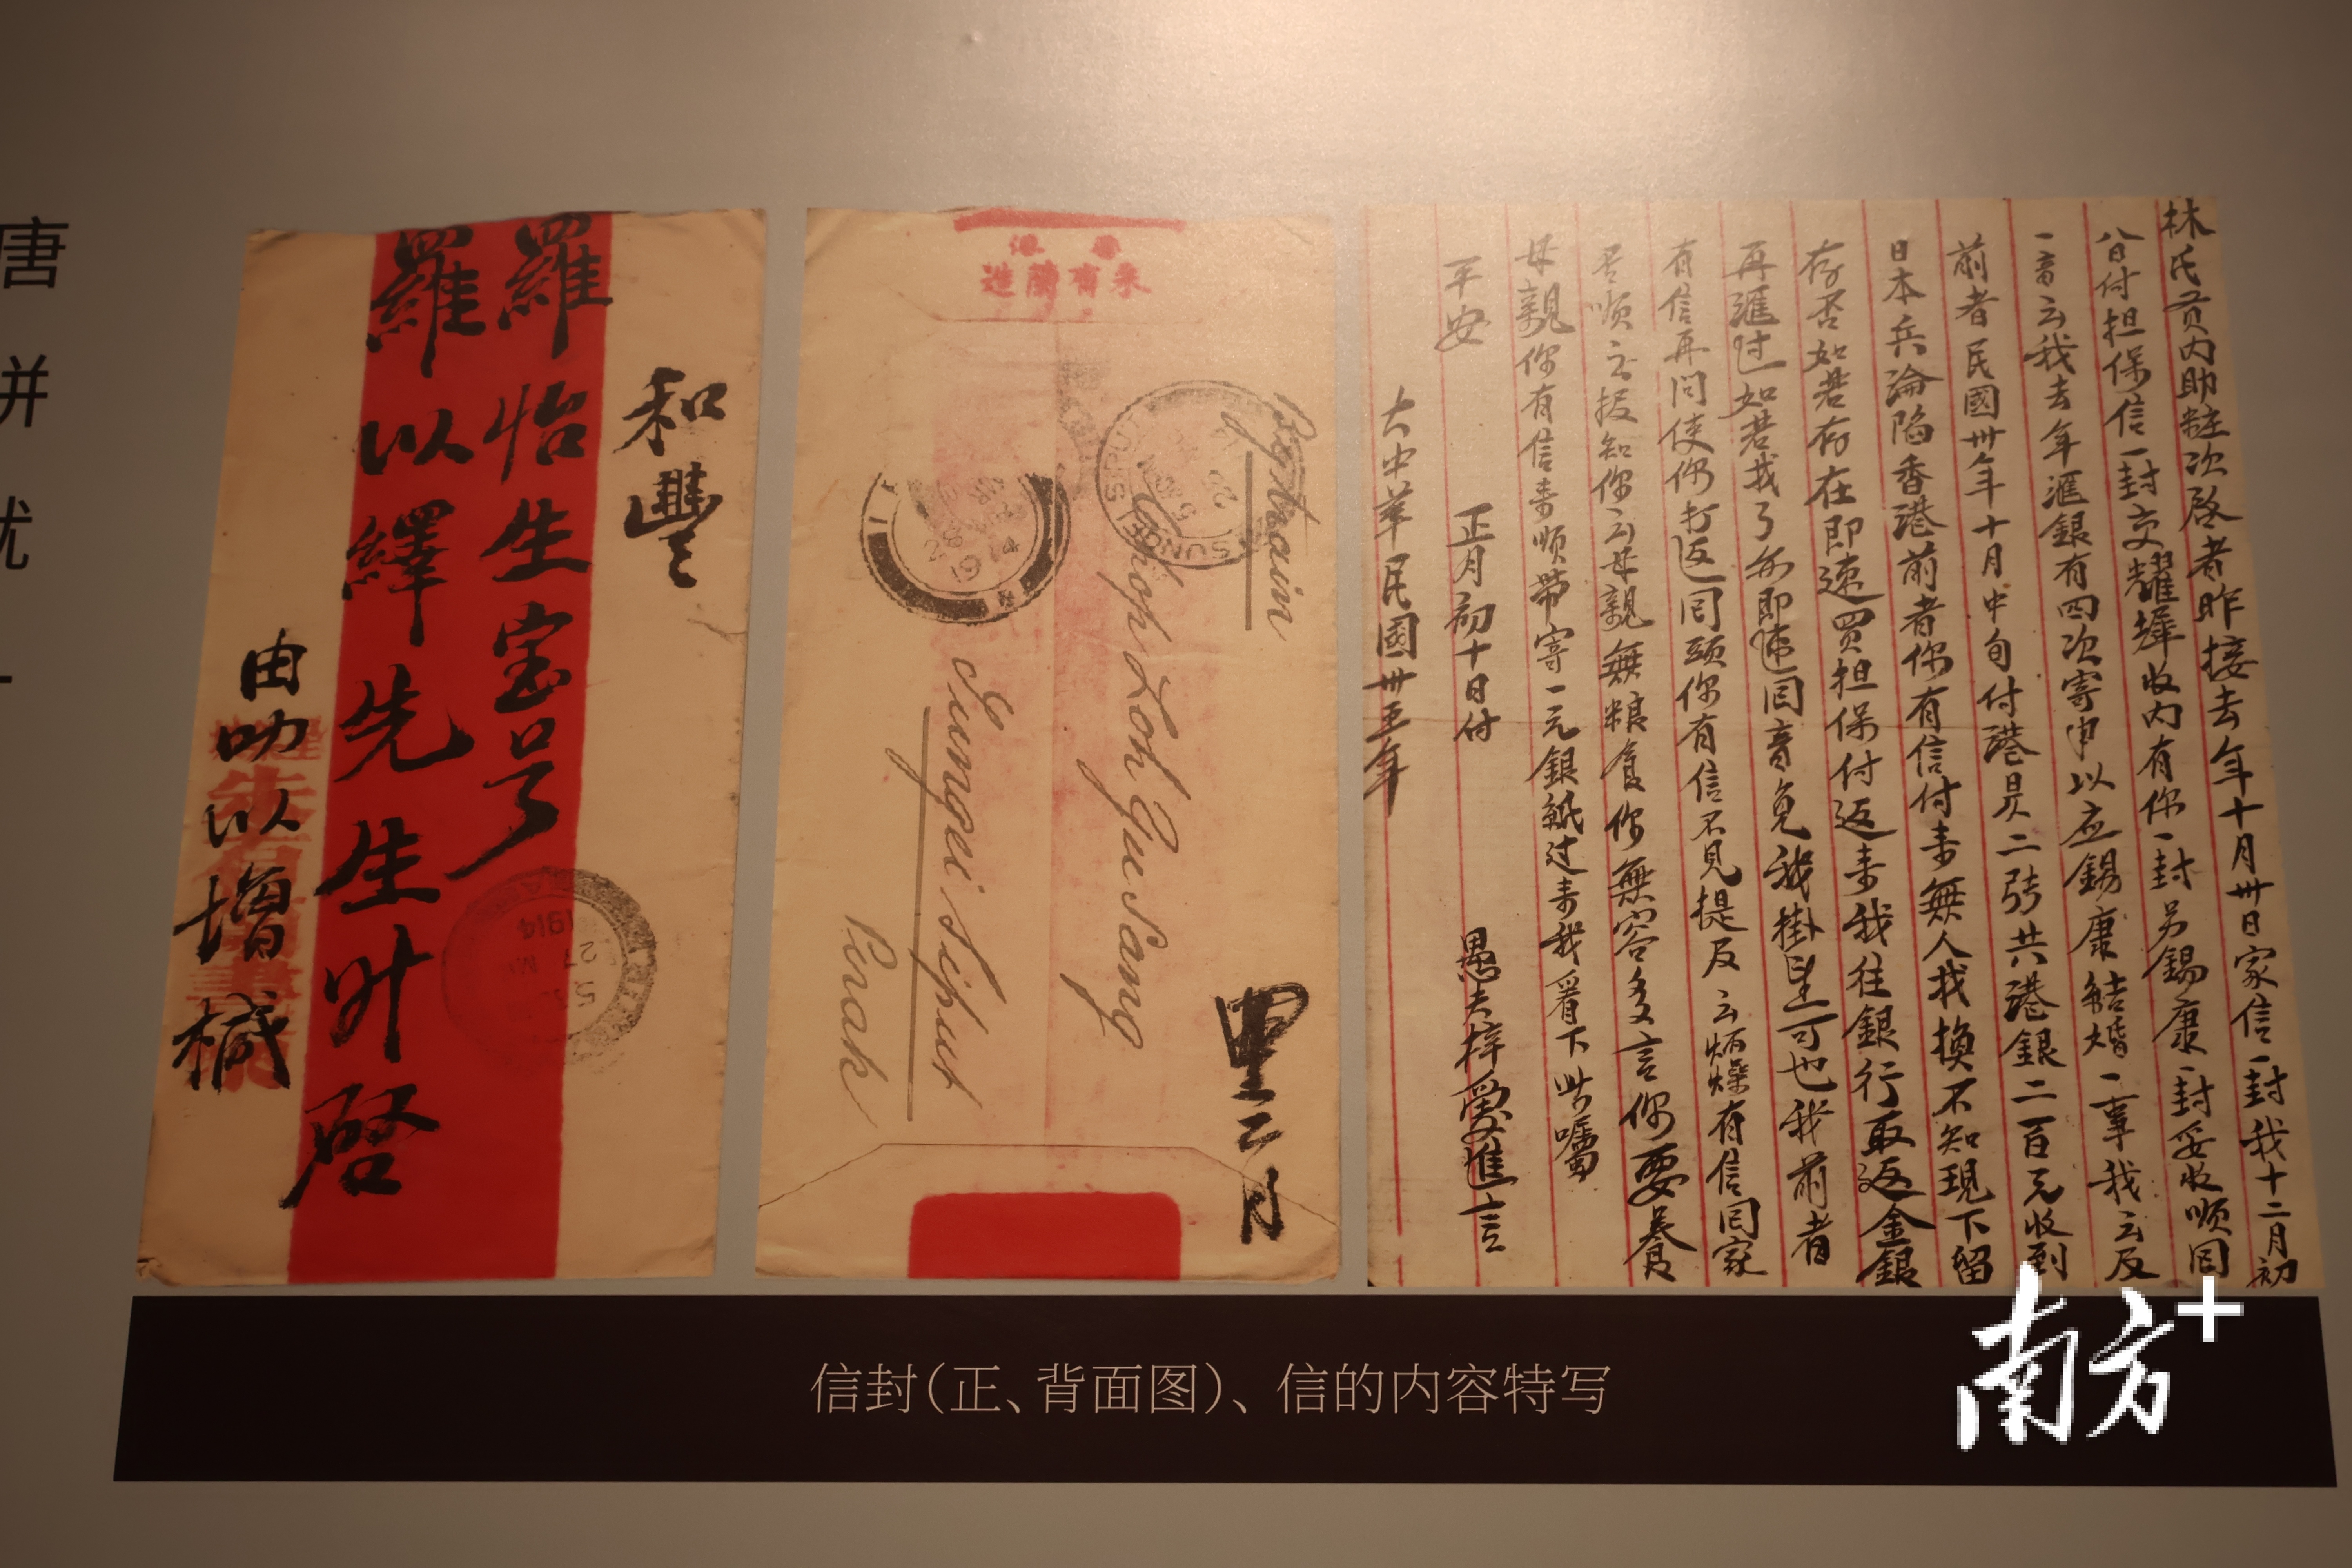 唐
并
忧
和豐
羅怡生宝号
羅以繹先生升啓
由叻以增椷
香港
朱有蘭造
By train
Chop Loh Yu Sang
Sungei Siput
Perak
SUNGEI SIPUT
1914
1914
里二月
林氏贡内助粧次啟者昨接去年十月卅日家信一封我十二月初
八日付担保信一封交耀墀收内有你一封另錫康一封妥收順囘
一音云我去年滙銀有四次寄申以应錫康結婚一事我云及
前者民國卅年十月中旬付港昃二號共港銀二百元收到
日本兵淪陷香港前者你有信付来無人找換不知現下留
存否如若存在即速買担保付返来我往銀行取返金銀
再滙过如若找了亦即速囘音免我掛望可也我前者
有信再问使你打返囘頭你有信不見提及云炳燦有信囘家
否順之报知你云母親無粮食你無容多言你要养
母親你有信来順带寄一元銀紙过来我看下此嘱
平安 正月初十日付 愚夫梓爱進言
大中華民國卅五年
信封(正、背面图)、信的内容特写
南方+